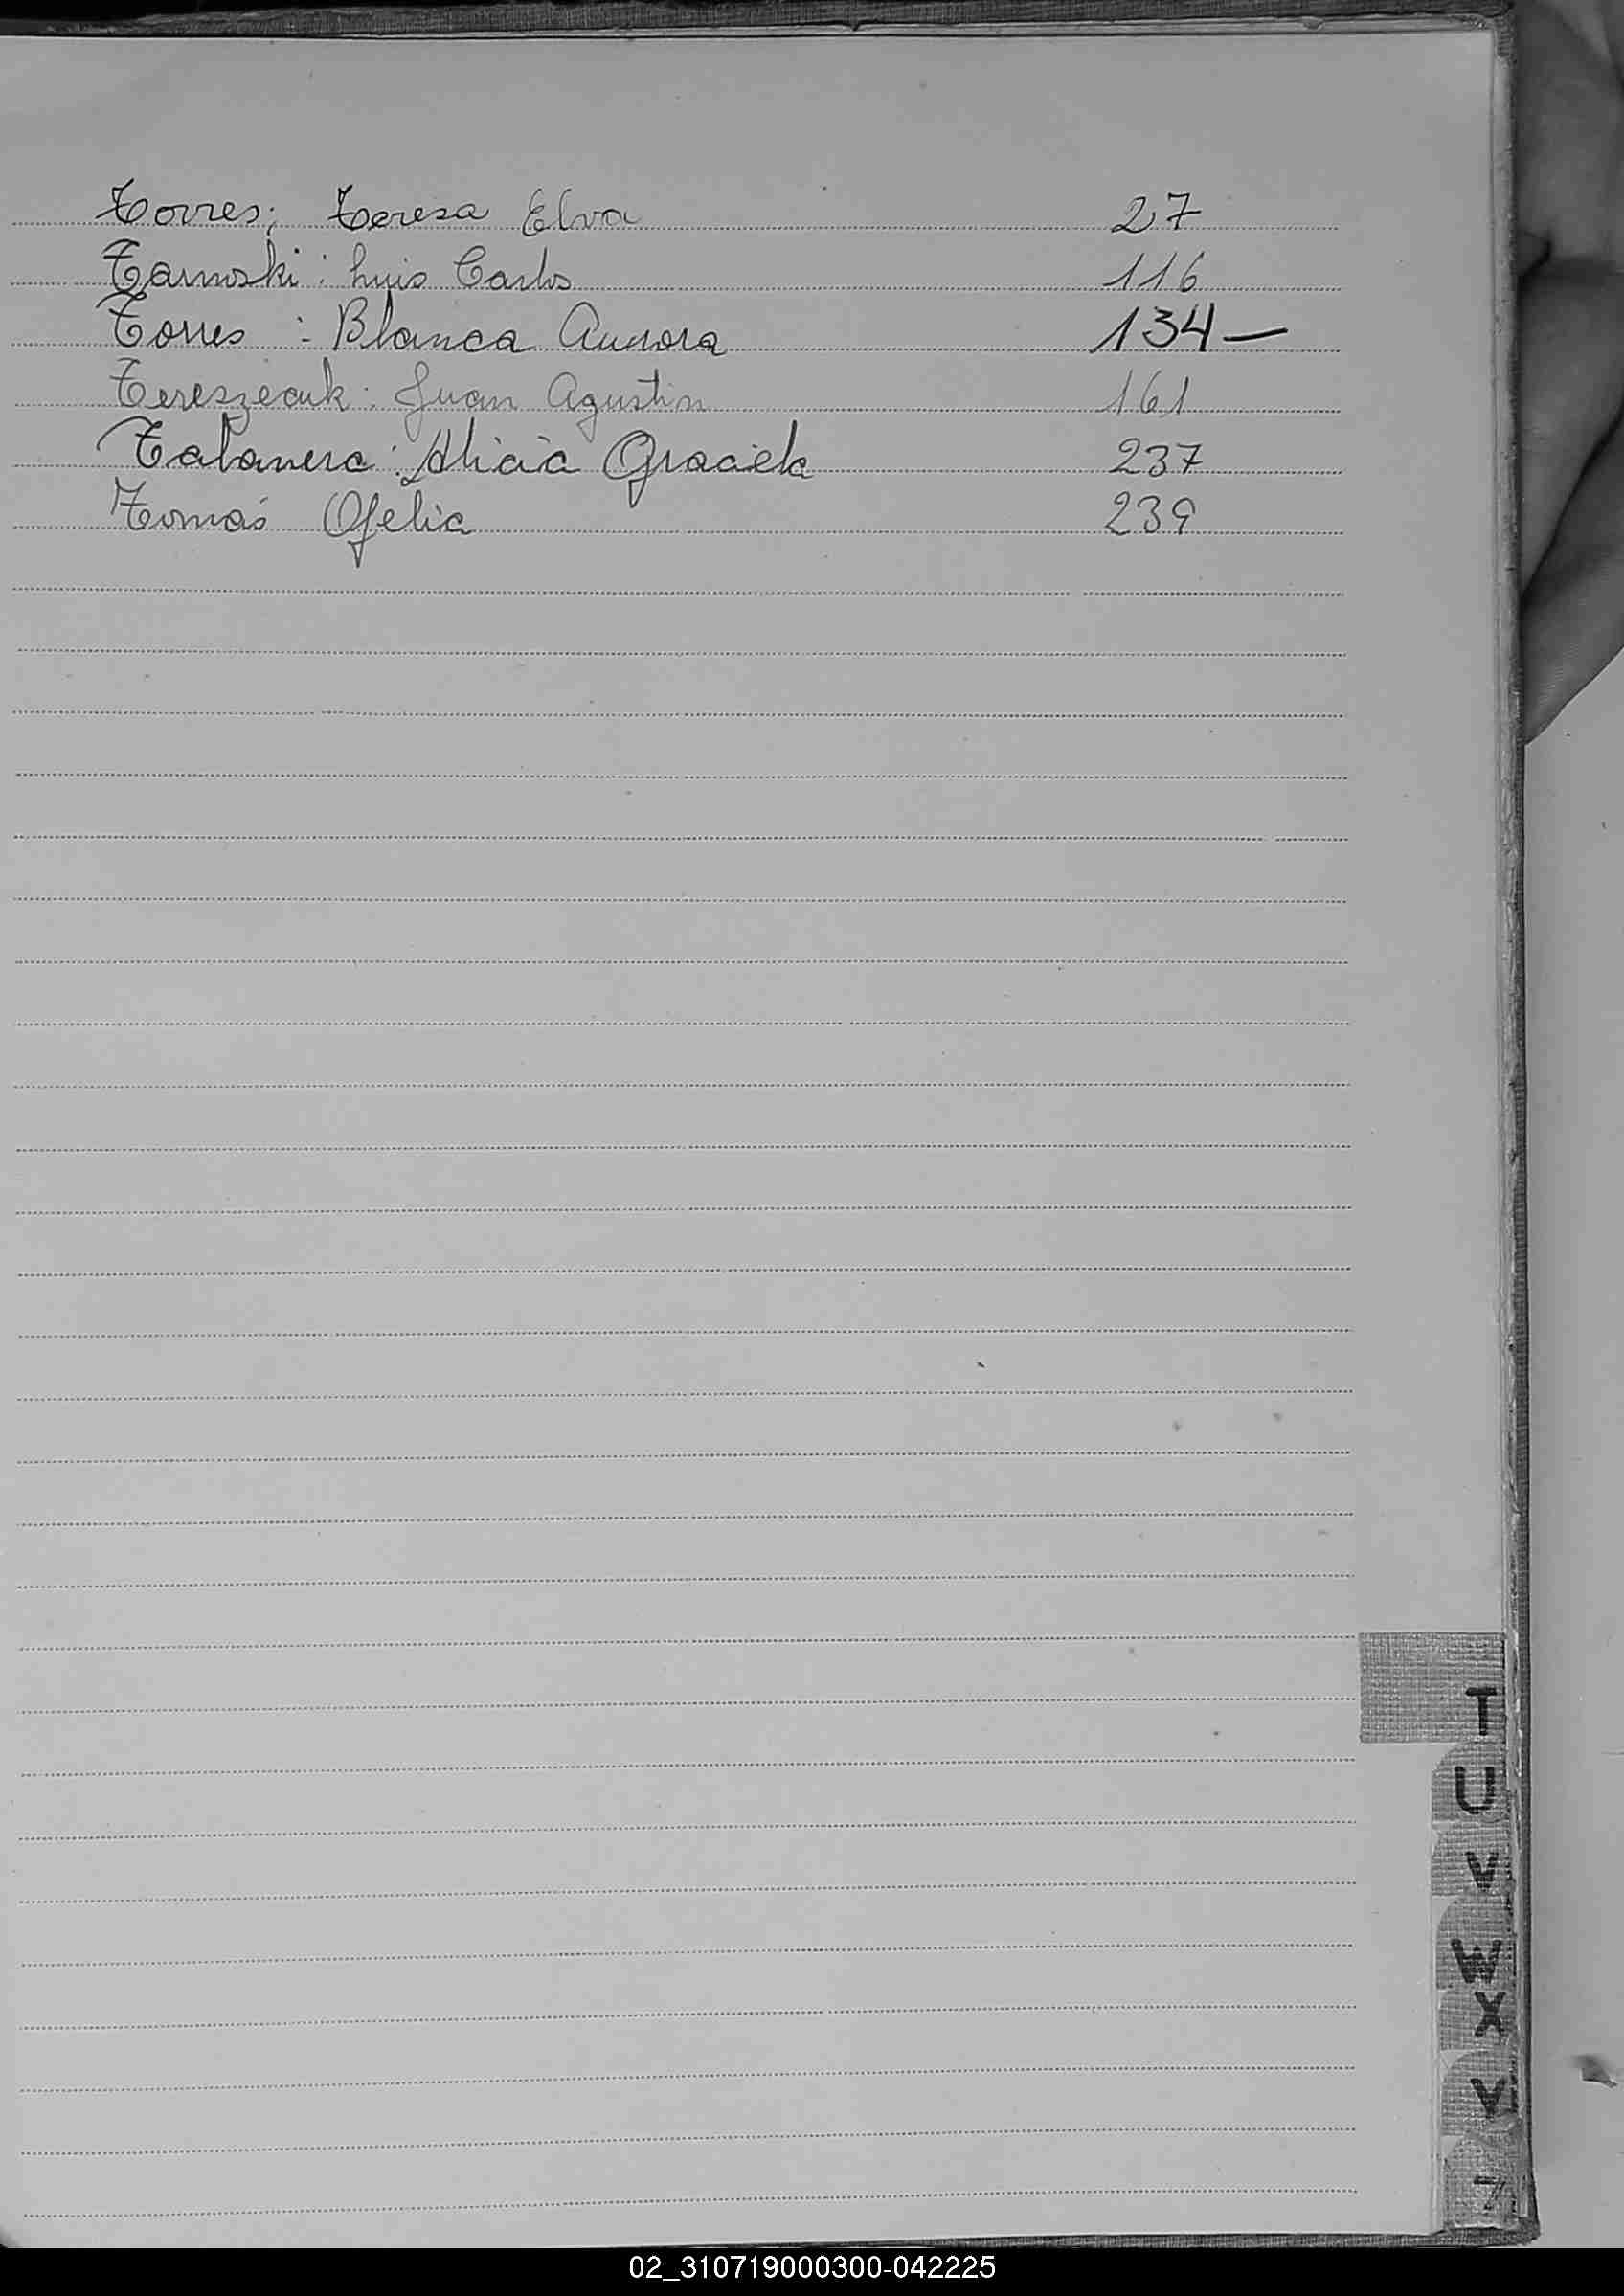 Torres; Teresa Elva 27
Tarnoski: Luis Carlos 116
Torres : Blanca Aurora 134—
Tereszecuk: Juan Agustin 161
Talavera: Alicia Graciela 237
Tomás Ofelia 239
T
U
V
W
X
Y
Z
02_310719000300-042225